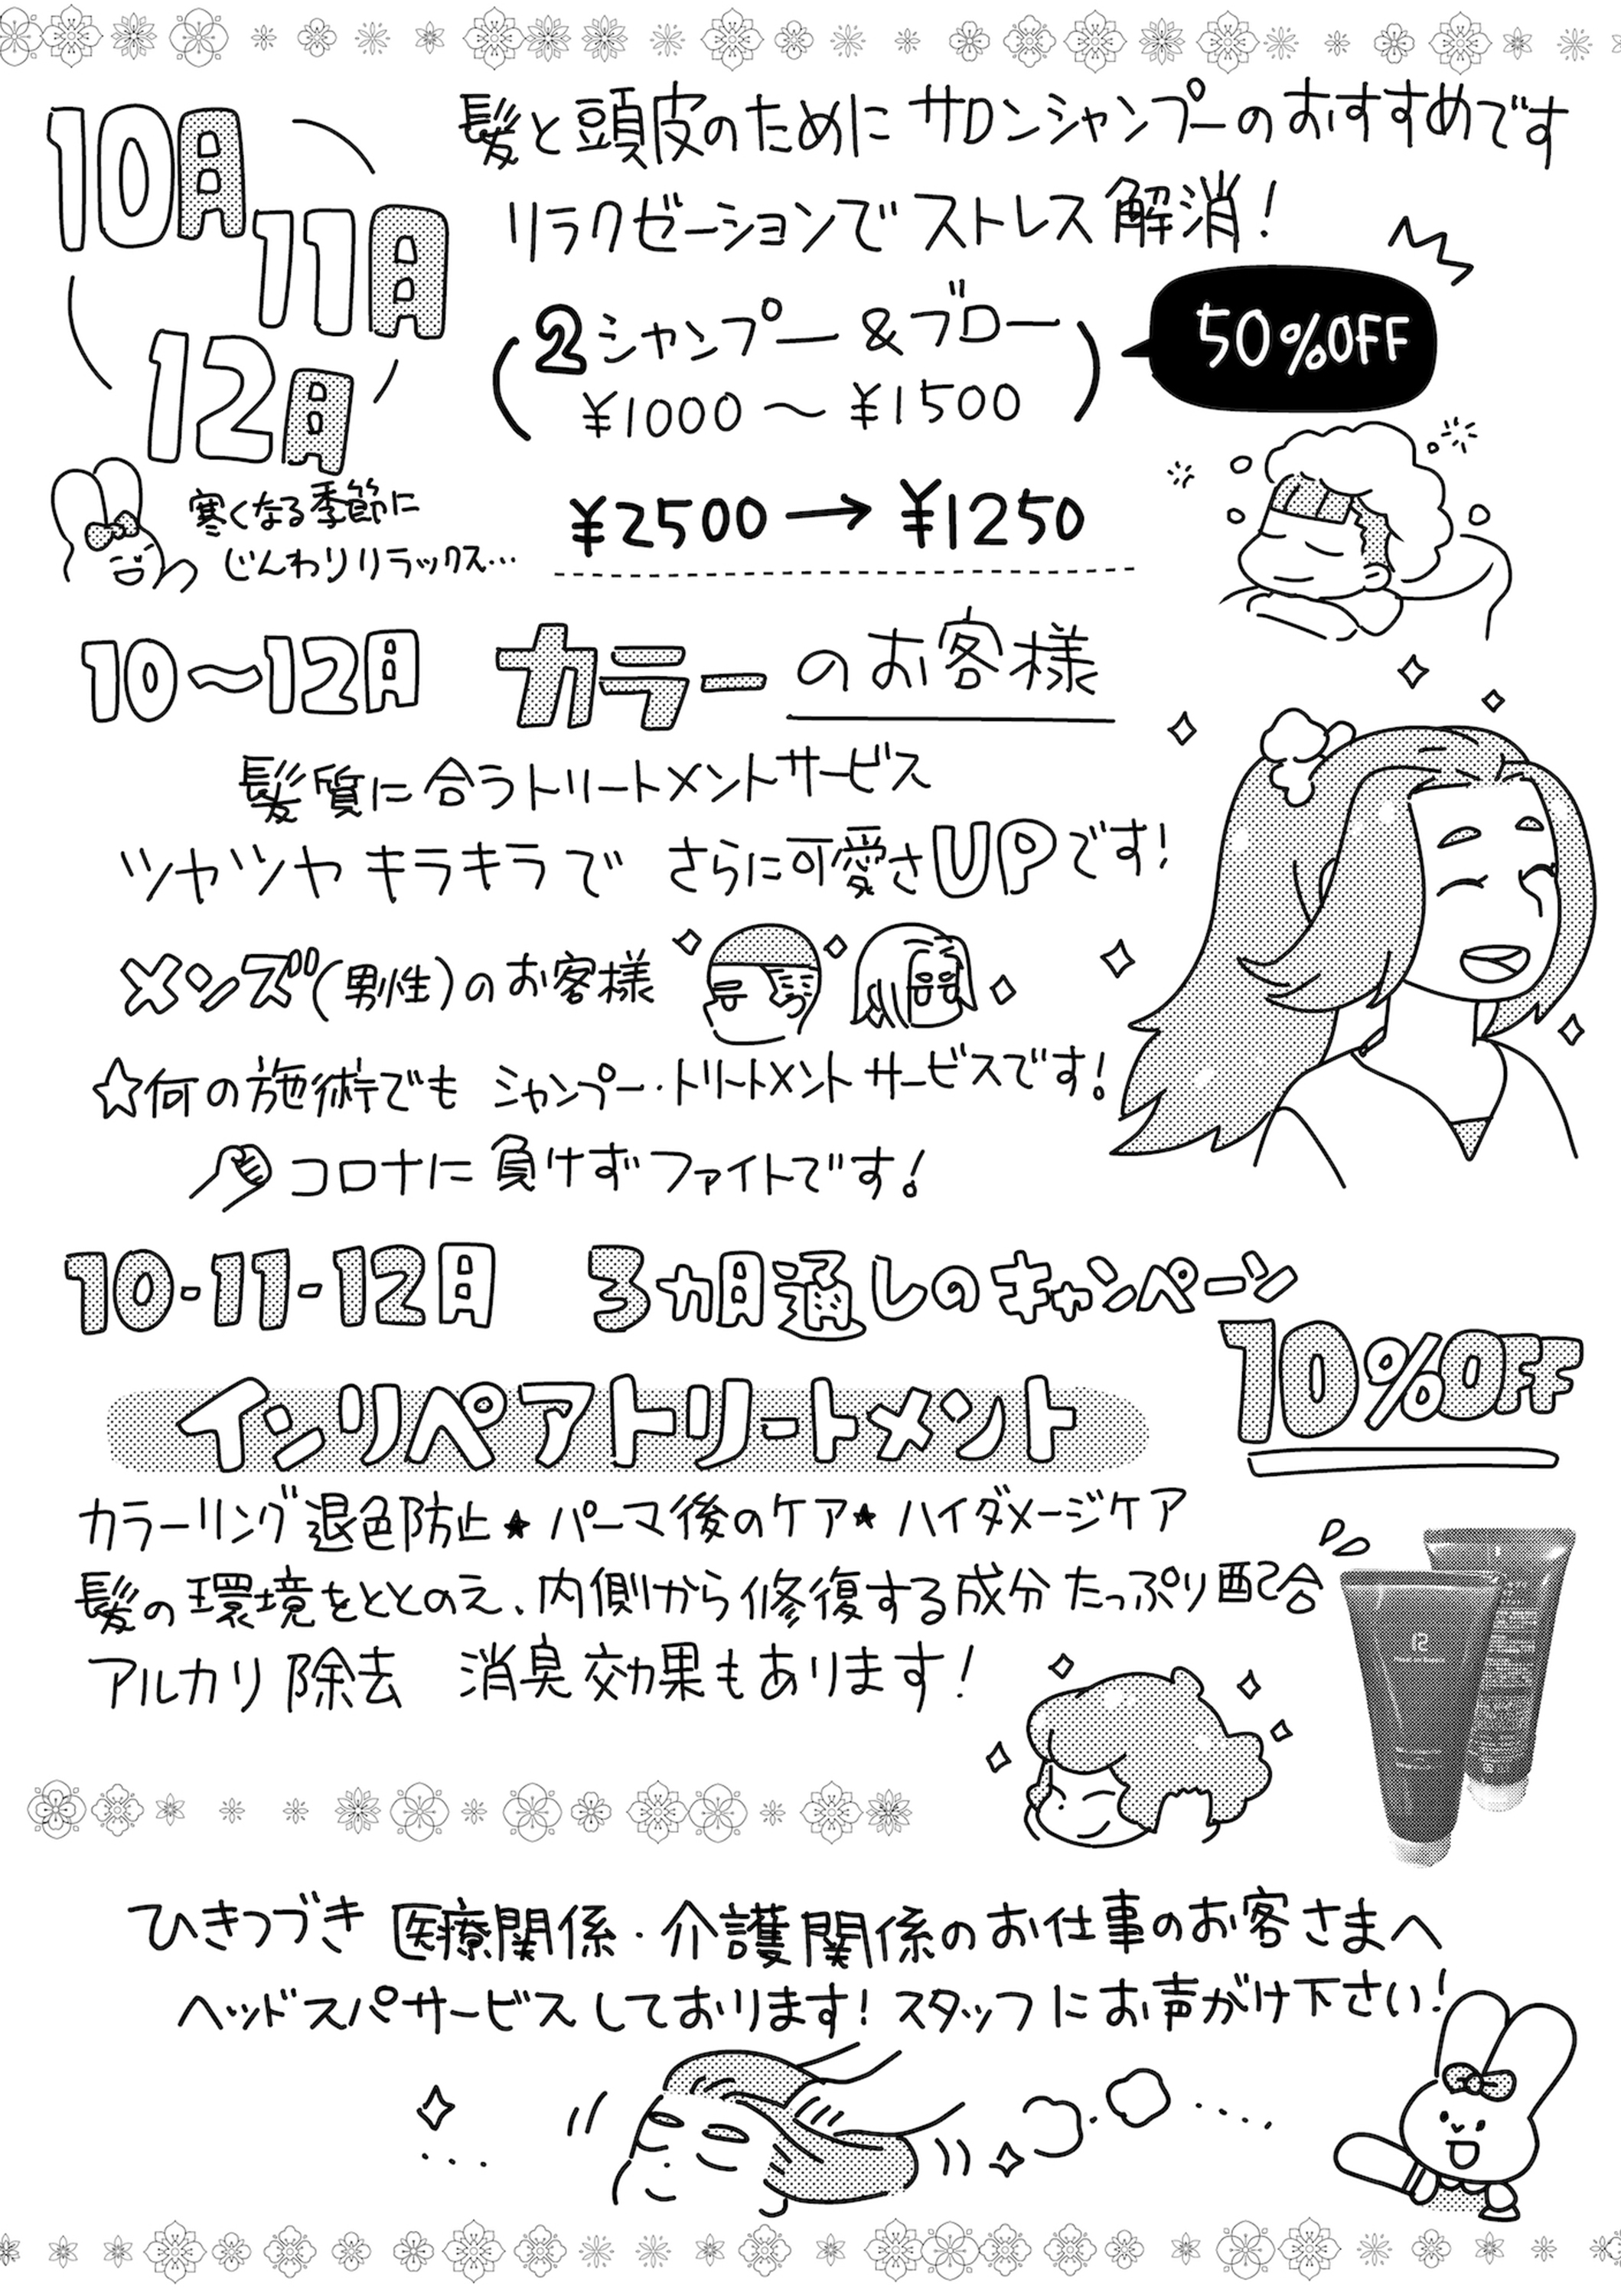 10月
11月
12月
髪と頭皮のために サロンシャンプーのおすすめです
リラクゼーションでストレス解消!
(2シャンプー&ブロー
¥1000〜¥1500)
50%OFF
寒くなる季節に
じんわりリラックス…
¥2500→¥1250
10〜12月 カラーのお客様
髪質に合うトリートメントサービス
ツヤツヤ キラキラで さらに可愛さUPです!
メンズ(男性)のお客様
☆何の施術でも シャンプー・トリートメントサービスです!
コロナに負けずファイトです!
10-11-12月 3カ月通しのキャンペーン
10%OFF
インリペアトリートメント
カラーリング退色防止★パーマ後のケア★ハイダメージケア
髪の環境をととのえ、内側から修復する成分たっぷり配合
アルカリ除去 消臭効果もあります!
ひきつづき 医療関係・介護関係のお仕事のお客さまへ
ヘッドスパサービスしております!スタッフにお声がけ下さい!